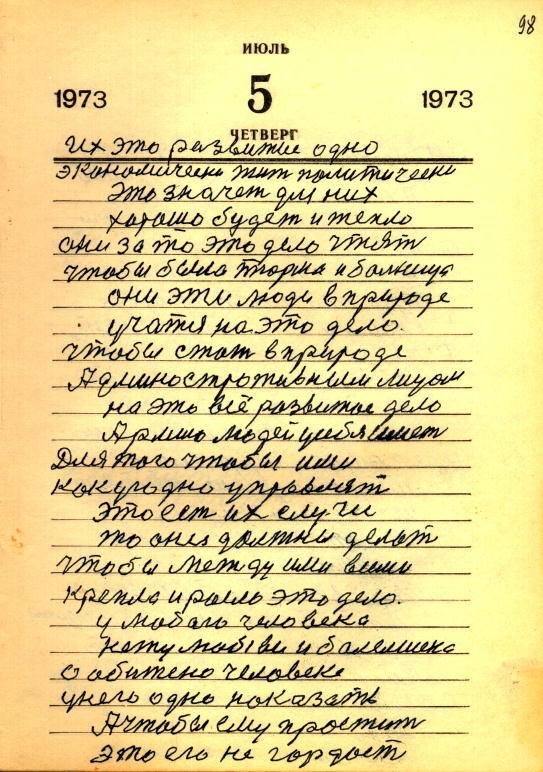 98
ИЮЛЬ
1973 5 1973
ЧЕТВЕРГ
Их это развитие одно
экономически жит политически
Это значет для них
хорошо будет и тепло
они за то это дело чтят
чтобы была тюрма и болница
они эти люди в природе
учатся на это дело.
чтобы стат в природе
Админостротивным лицом
на это всё развитое дело
Армию людей у себя имет
Для того чтобы ими
как угодно управлят
Это ест их случи
то они должны делат
чтобы между ими
крепло и росло это дело.
у любого человека
нету любви
о обижено человеке
у него одно показать
А чтобы ему простит
Это его не гордост